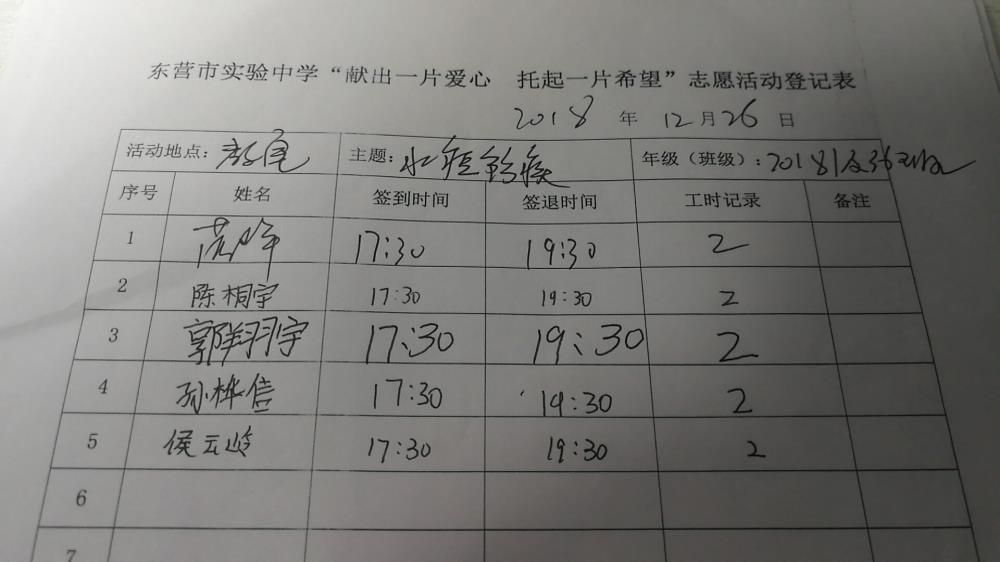 东营市实验中学“献出一片爱心 托起一片希望”志愿活动登记表
2018 年 12 月 26 日
活动地点： 主题： 年级（班级）：2018级36班
序号 姓名 签到时间 签退时间 工时记录 备注
1 范峰 17:30 19:30 2
2 陈桐宇 17:30 19:30 2
3 郭翔宇 17:30 19:30 2
4 孙桦信 17:30 19:30 2
5 侯云峻 17:30 19:30 2
6
7